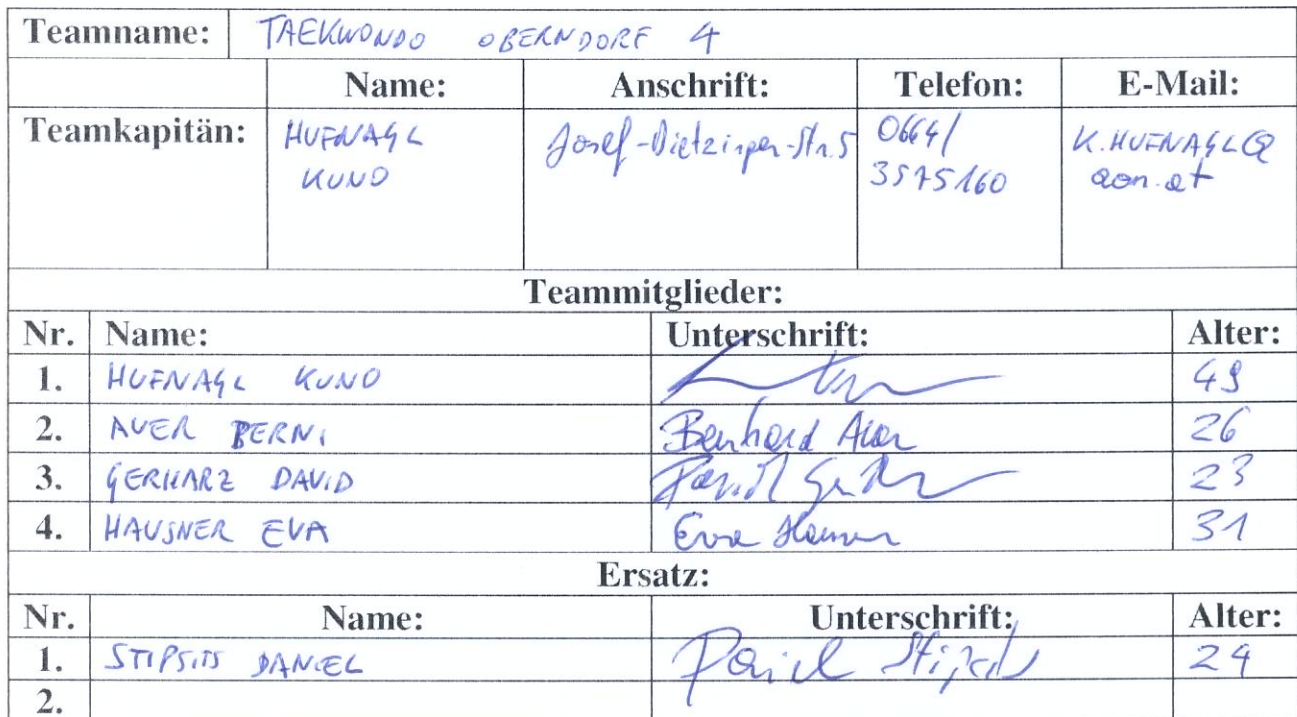 Teamname: TAEKWONDO OBERNDORF 4
Name: Anschrift: Telefon: E-Mail:
Teamkapitän: HUFNAGL Josef-Dietzinger-Str. 5 0664/ K.HUFNAGL@
KUNO 3575160 aon.at
Teammitglieder:
Nr. Name: Unterschrift: Alter:
1. HUFNAGL KUNO 49
2. AUER BERNI Bernhard Auer 26
3. GERHARZ DAVID David 23
4. HAUSNER EVA Eva Hausner 31
Ersatz:
Nr. Name: Unterschrift: Alter:
1. STIPSITS DANIEL Daniel Stipsits 24
2.